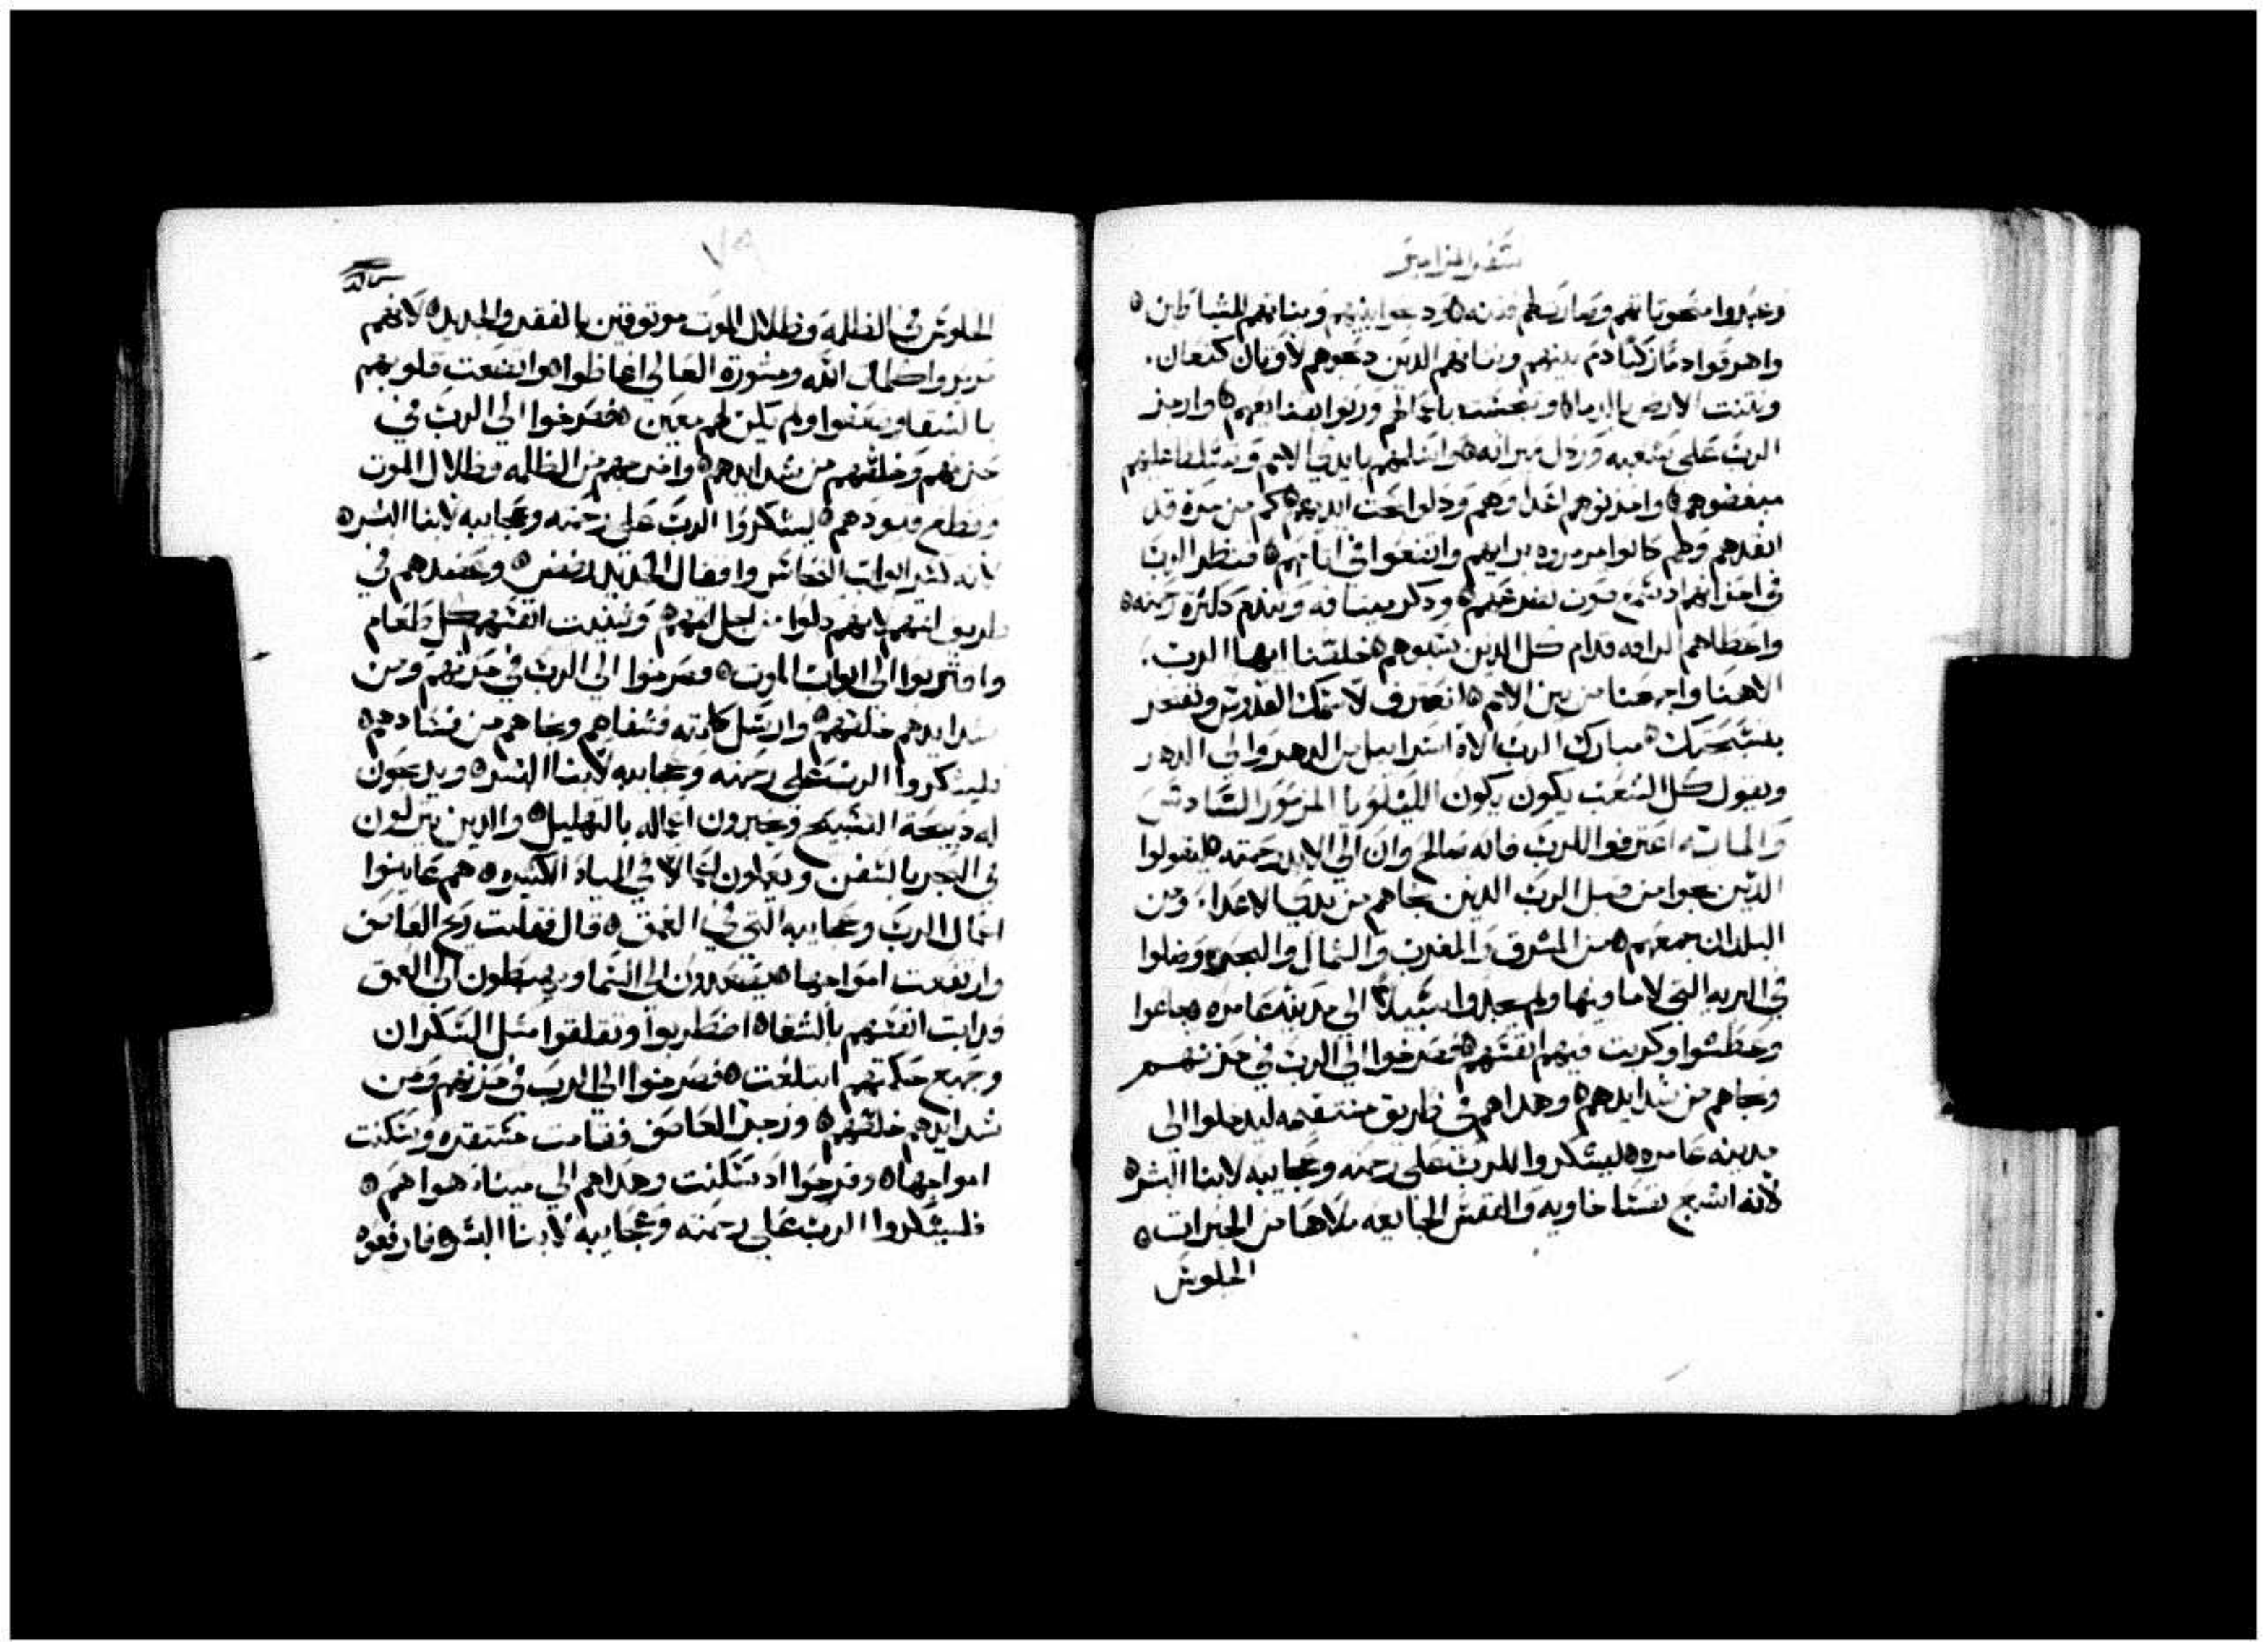 سفر المزامير
وعبدوا منحوتاتهم وصارت لهم فتنه ودبحوا بنيهم وبناتهم للشياطين
واهرقوا دمًا زكيًا دم بنيهم وبناتهم الدين دبحوهم لاوتان كنعان.
وتنت الارض بالدماء وتنجست باعمالهم وزنوا بصنايعهم وارجز
الرب على شعبه وردل ميراته واسلمهم بايدي الامم وتسلط عليهم
مبغضوهم واحزنوهم اعداوهم ودلوا تحت ايديهم كم من مرة قد
انقدهم وهم كانوا مرمروه برايهم واتضعوا في اتامهم فنظر الرب
في احزانهم اد سمع صوت تضرعهم ودكر ميتاقه وتندم ككترة رحمته
واعطاهم الرافه قدام كل الدين سبوهم خلصنا ايها الرب.
الاهنا واجمعنا من بين الامم لنعترف لاسمك القدوس ونفتخر
بتسبحتك مبارك الرب الاه اسراييل من الدهر والى الدهر
ويقول كل الشعب يكون يكون الليلويا المزمور السادس
والمايه اعترفوا للرب فانه صالح وان الي الابد رحمته ليقولوا
الدين نجوا من قبل الرب الدين نجاهم من يدي الاعدا. ومن
البلدان جمعهم من المشرق والمغرب والشمال والبحر وضلوا
في البريه التي لا ما فيها ولم يجدوا سبيلاً الي مدينه عامره جاعوا
وعطشوا وكربت فيهم انفسهم فصرخوا الي الرب في حزنهم
ونجاهم من شدايدهم وهداهم في طريق مستقيمه ليدخلوا الى
مدينه عامره ليشكروا للرب على رحمته وعجايبه لابنا البشر
لانه اشبع نفسًا خاويه والنفس الجايعه ملاها من الخيرات
الجلوس
٧٩
الجلوس في الظلمه وظلال الموت موتوقين بالفقر والحديد لانهم
مرمروا كلمات الله ومشورة العالي اغاظوا واتضعت قلوبهم
بالشقا وضعفوا ولم يكن لهم معين فصرخوا الي الرب في
حزنهم وخلصهم من شدايدهم واخرجهم من الظلمه وظلال الموت
وقطع قيودهم ليشكروا الرب على رحمته وعجايبه لابنا البشر
لانه كسر ابواب النحاس واقفال الحديد رضض وعضدهم في
طريق اتمهم لانهم دلوا من اجل اتمهم ورديت انفسهم كل طعام
واقتربوا الى ابواب الموت فصرخوا الي الرب في حزنهم ومن
شدايدهم خلصهم وارسل كلمته فشفاهم ونجاهم من فسادهم
فليشكروا الرب على رحمته وعجايبه لابنا البشر ويدبحون
له دبيحة التسبيح ويخبرون اعماله بالتهليل والدين ينزلون
في البحر بالسفن ويعملون اعمالا في المياه الكتيره هم عاينوا
اعمال الرب وعجايبه التي في العمق قال فقامت ريح العاصف
وارتفعت امواجها يصعدون الى السما ويهبطون الى العمق
ودابت انفسهم بالشقا اضطربوا وتقلقوا متل السكران
وجميع حكمتهم ابتلعت فصرخوا الى الرب في حزنهم ومن
شدايدهم خلصهم وزجر العاصف فقامت مستقره وسكنت
امواجها وفرحوا اد سكنت وهداهم الي ميناء هواهم
فليشكروا الرب على رحمته وعجايبه لابنا البشر فارفعوه